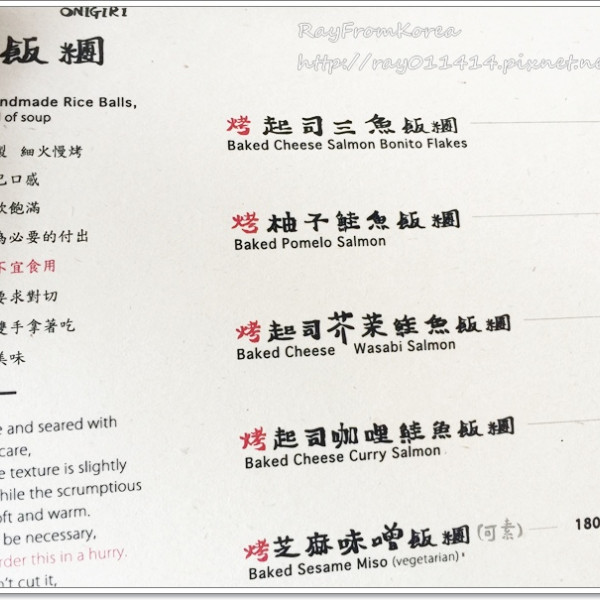 ONIGIRI
飯糰
RayFromKorea
http://ray011414.pixnet.ne
ndmade Rice Balls,
l of soup
烤起司三魚飯糰
Baked Cheese Salmon Bonito Flakes
製 細火慢烤
口感
飲飽滿
烤柚子鮭魚飯糰
Baked Pomelo Salmon
為必要的付出
不宜食用
要求對切
雙手拿著吃
美味
烤起司芥茉鮭魚飯糰
Baked Cheese Wasabi Salmon
烤起司咖哩鮭魚飯糰
Baked Cheese Curry Salmon
e and seared with
care,
e texture is slightly
hile the scrumptious
oft and warm.
be necessary,
rder this in a hurry.
't cut it,
烤芝麻味噌飯糰(可素) 180
Baked Sesame Miso (vegetarian)